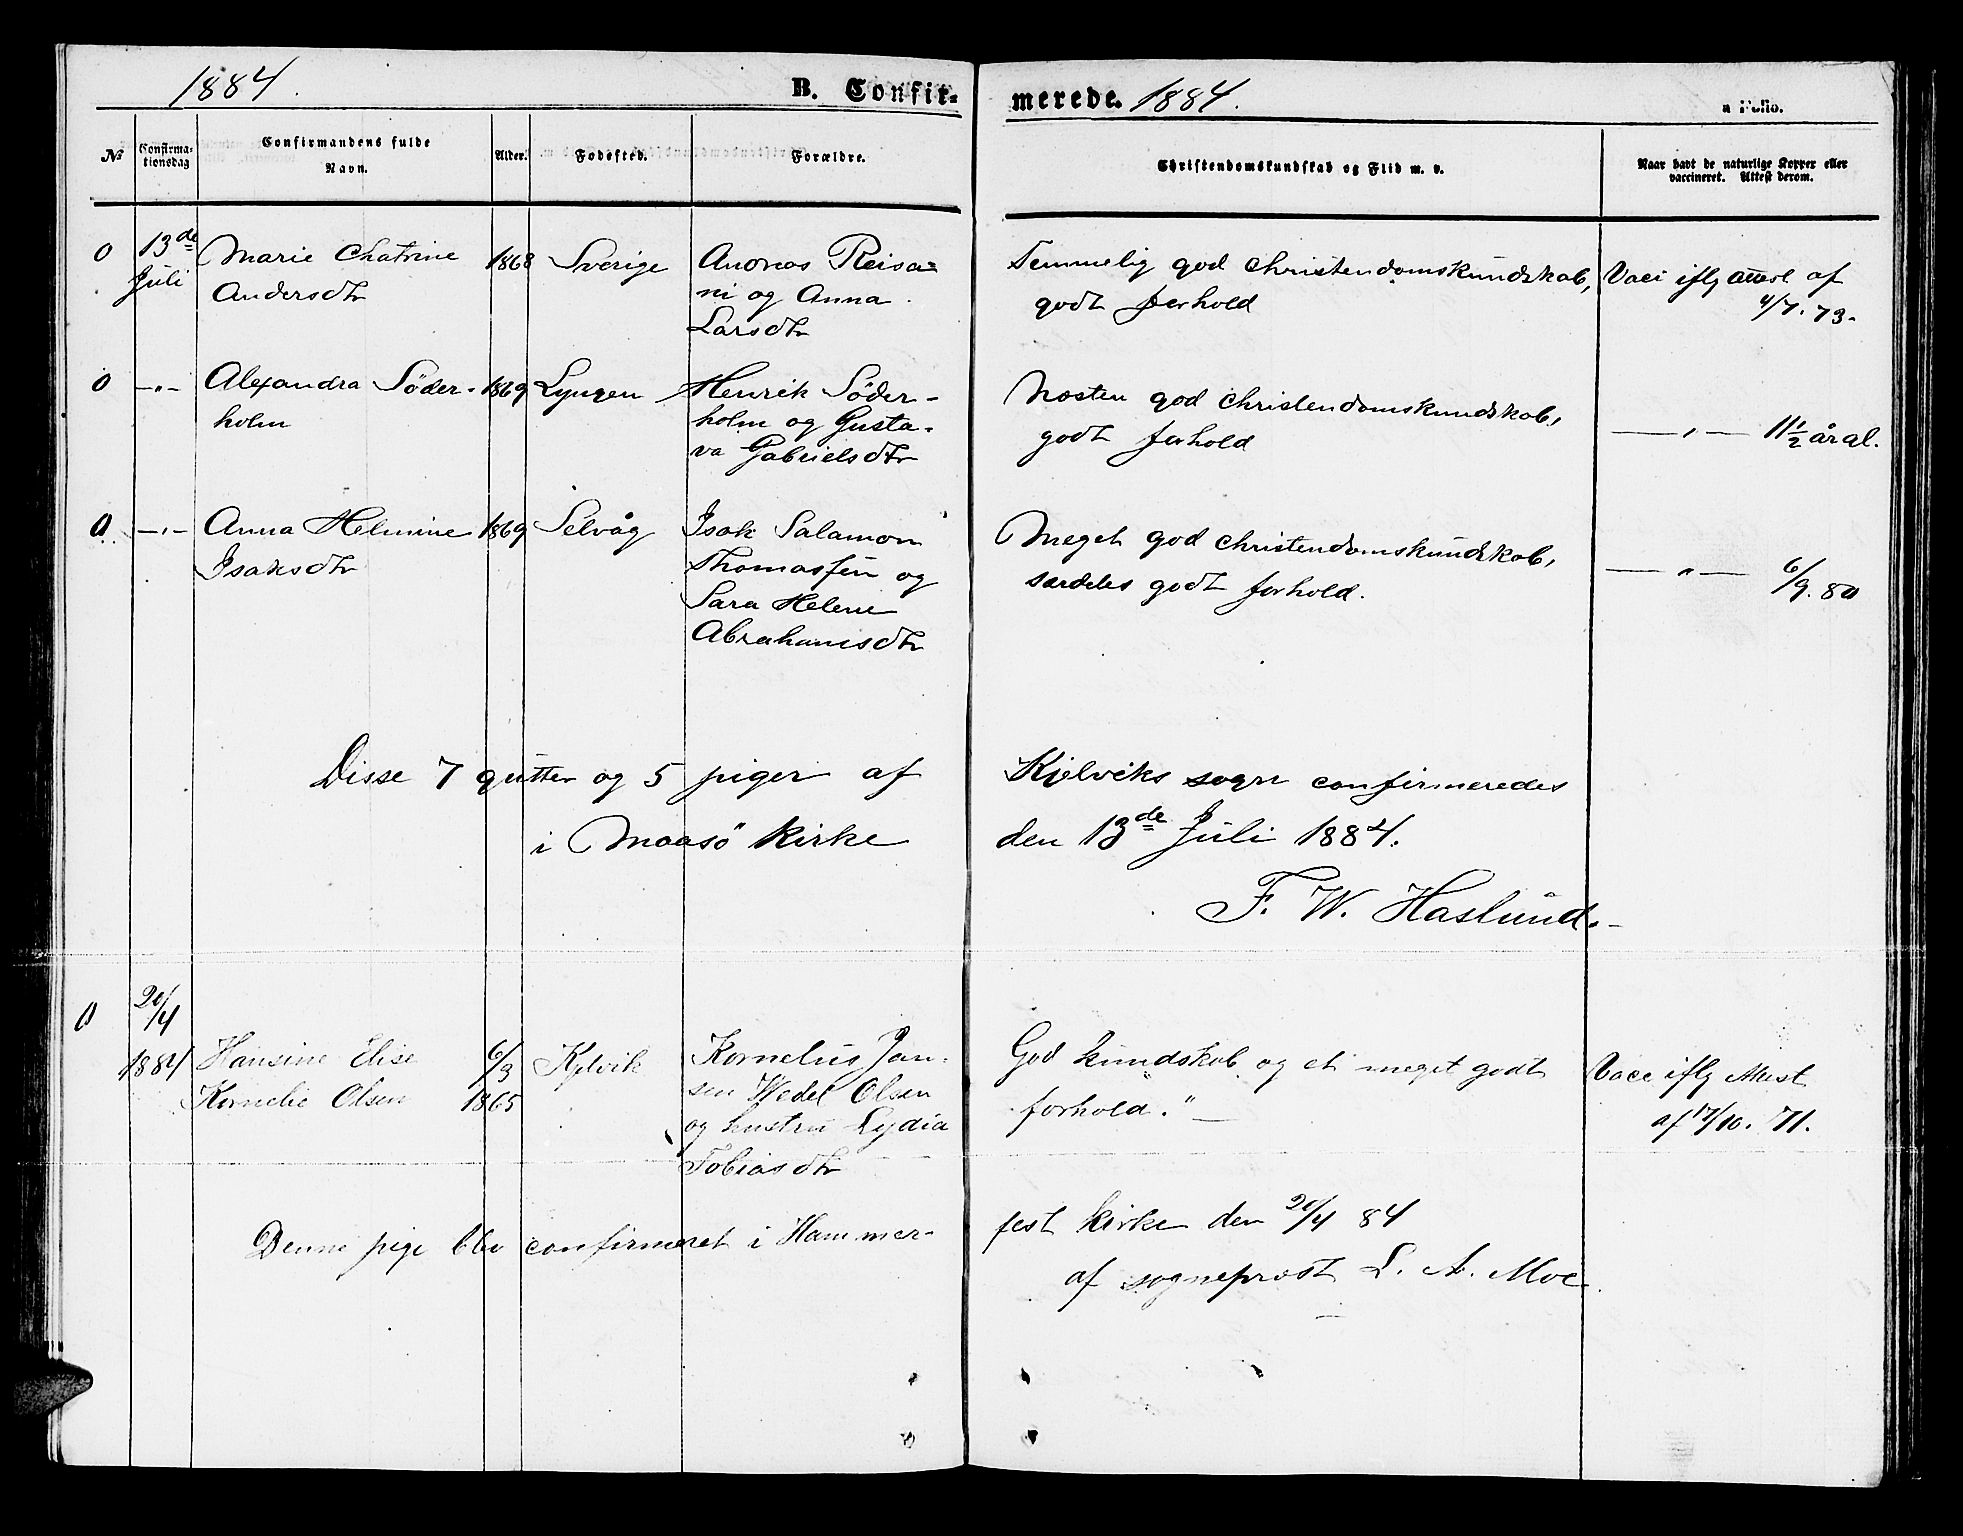 1884.
B. Confir-
merede. 1884.
a Folio.
No
Confirma-
tionsdag
Confirmandens fulde
Navn.
Alder.
Fødested.
Forældre.
Christendomskundskab og Flid m. v.
Naar havt de naturlige Kopper eller
vaccineret. Attest derom.
0 13de Marie Chatrine 1868 Sverige Andreas Reisa= Temmelig god christendomskundskab, Vacc iflg attest af
Juli Andersdtr ni og Anna godt forhold 4/7.73.
Larsdtr
0 —"— Alexandra Söder- 1869 Lyngen Henrik Söder- Næsten god christendomskundskab, —"— 11½ år al.
holm holm og Gusta- godt forhold
va Gabrielsdtr
0 —"— Anna Helmine 1869 Selvåg Isak Salamon Meget god christendomskundskab, —"— 6/9.80
Isaksdtr Thomassen og særdeles godt forhold.
Sara Helene
Abrahamsdtr
Disse 7 gutter og 5 piger af Kjelviks sogn confirmeredes
i Maasö kirke den 13de Juli 1884.
F. W. Haslund.
0 20/4
1884 Hansine Elise 6/3 Kjelvik Kornelius Jan- God kundskab og et meget godt Vacc iflg Attest
Kornelie Olsen 1865 sen Wedel Olsen forhold." af 17/10. 71.
og hustru Lydia
Tobiasdtr
Denne pige blev confirmeret i Hammer- fest kirke den 20/4 84
af sogneprest L. A. Moe